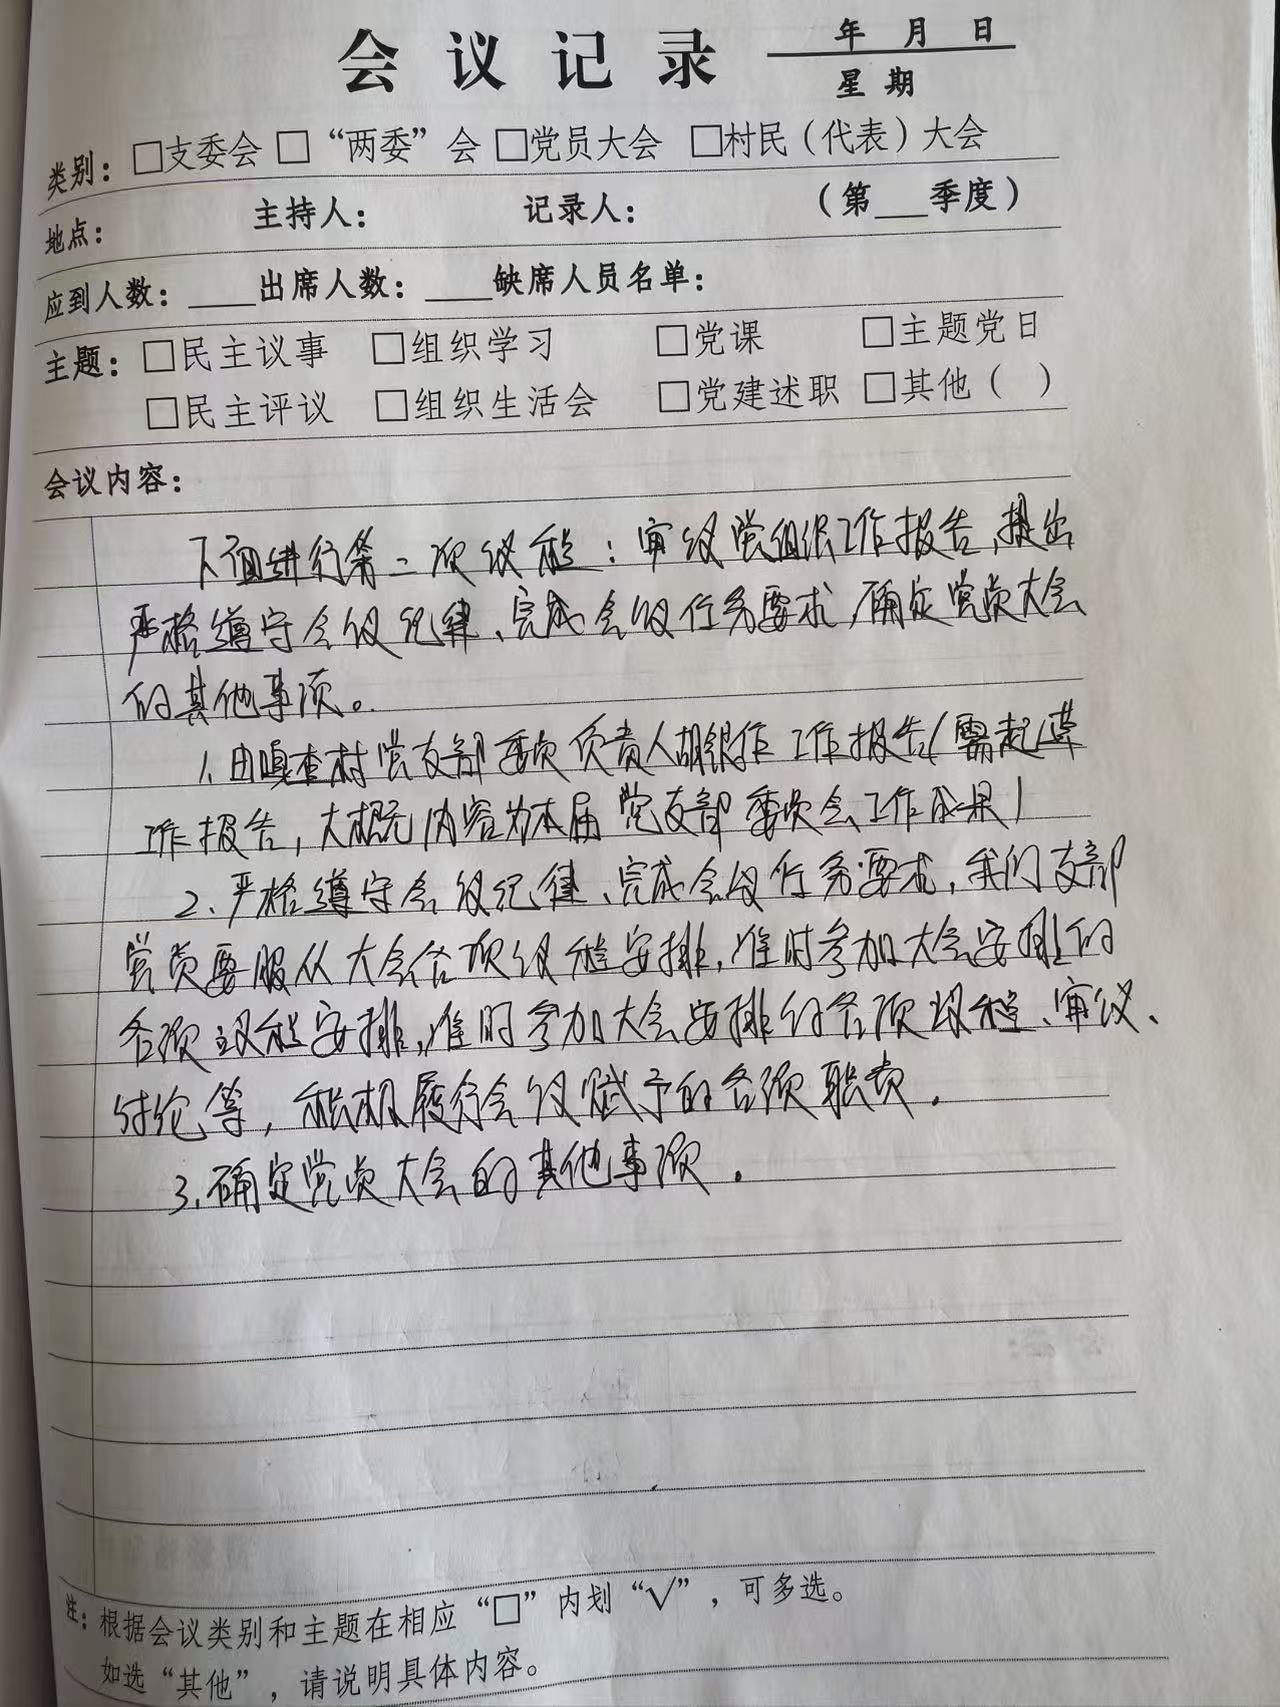 会议记录
年 月 日
星期
类别：□支委会 □“两委”会 □党员大会 □村民（代表）大会
地点： 主持人： 记录人： （第___季度）
应到人数：____出席人数：____缺席人员名单：
主题：□民主议事 □组织学习 □党课 □主题党日
□民主评议 □组织生活会 □党建述职 □其他（ ）
会议内容：
下面进行第二项议程：审议党组织工作报告，提出
严格遵守会议纪律、完成会议任务要求，确定党员大会
的其他事项。
1、由嘎查村党支部委员负责人胡银作工作报告（需起草
工作报告，大概内容为本届党支部委员会工作成果）
2、严格遵守会议纪律、完成会议任务要求，我们支部
党员要服从大会各项议程安排，准时参加大会安排的
各项议程安排，准时参加大会安排的各项议程、审议、
讨论等，积极履行会议赋予的各项职责。
3、确定党员大会的其他事项。
注：根据会议类别和主题在相应“□”内划“√”，可多选。
如选“其他”，请说明具体内容。